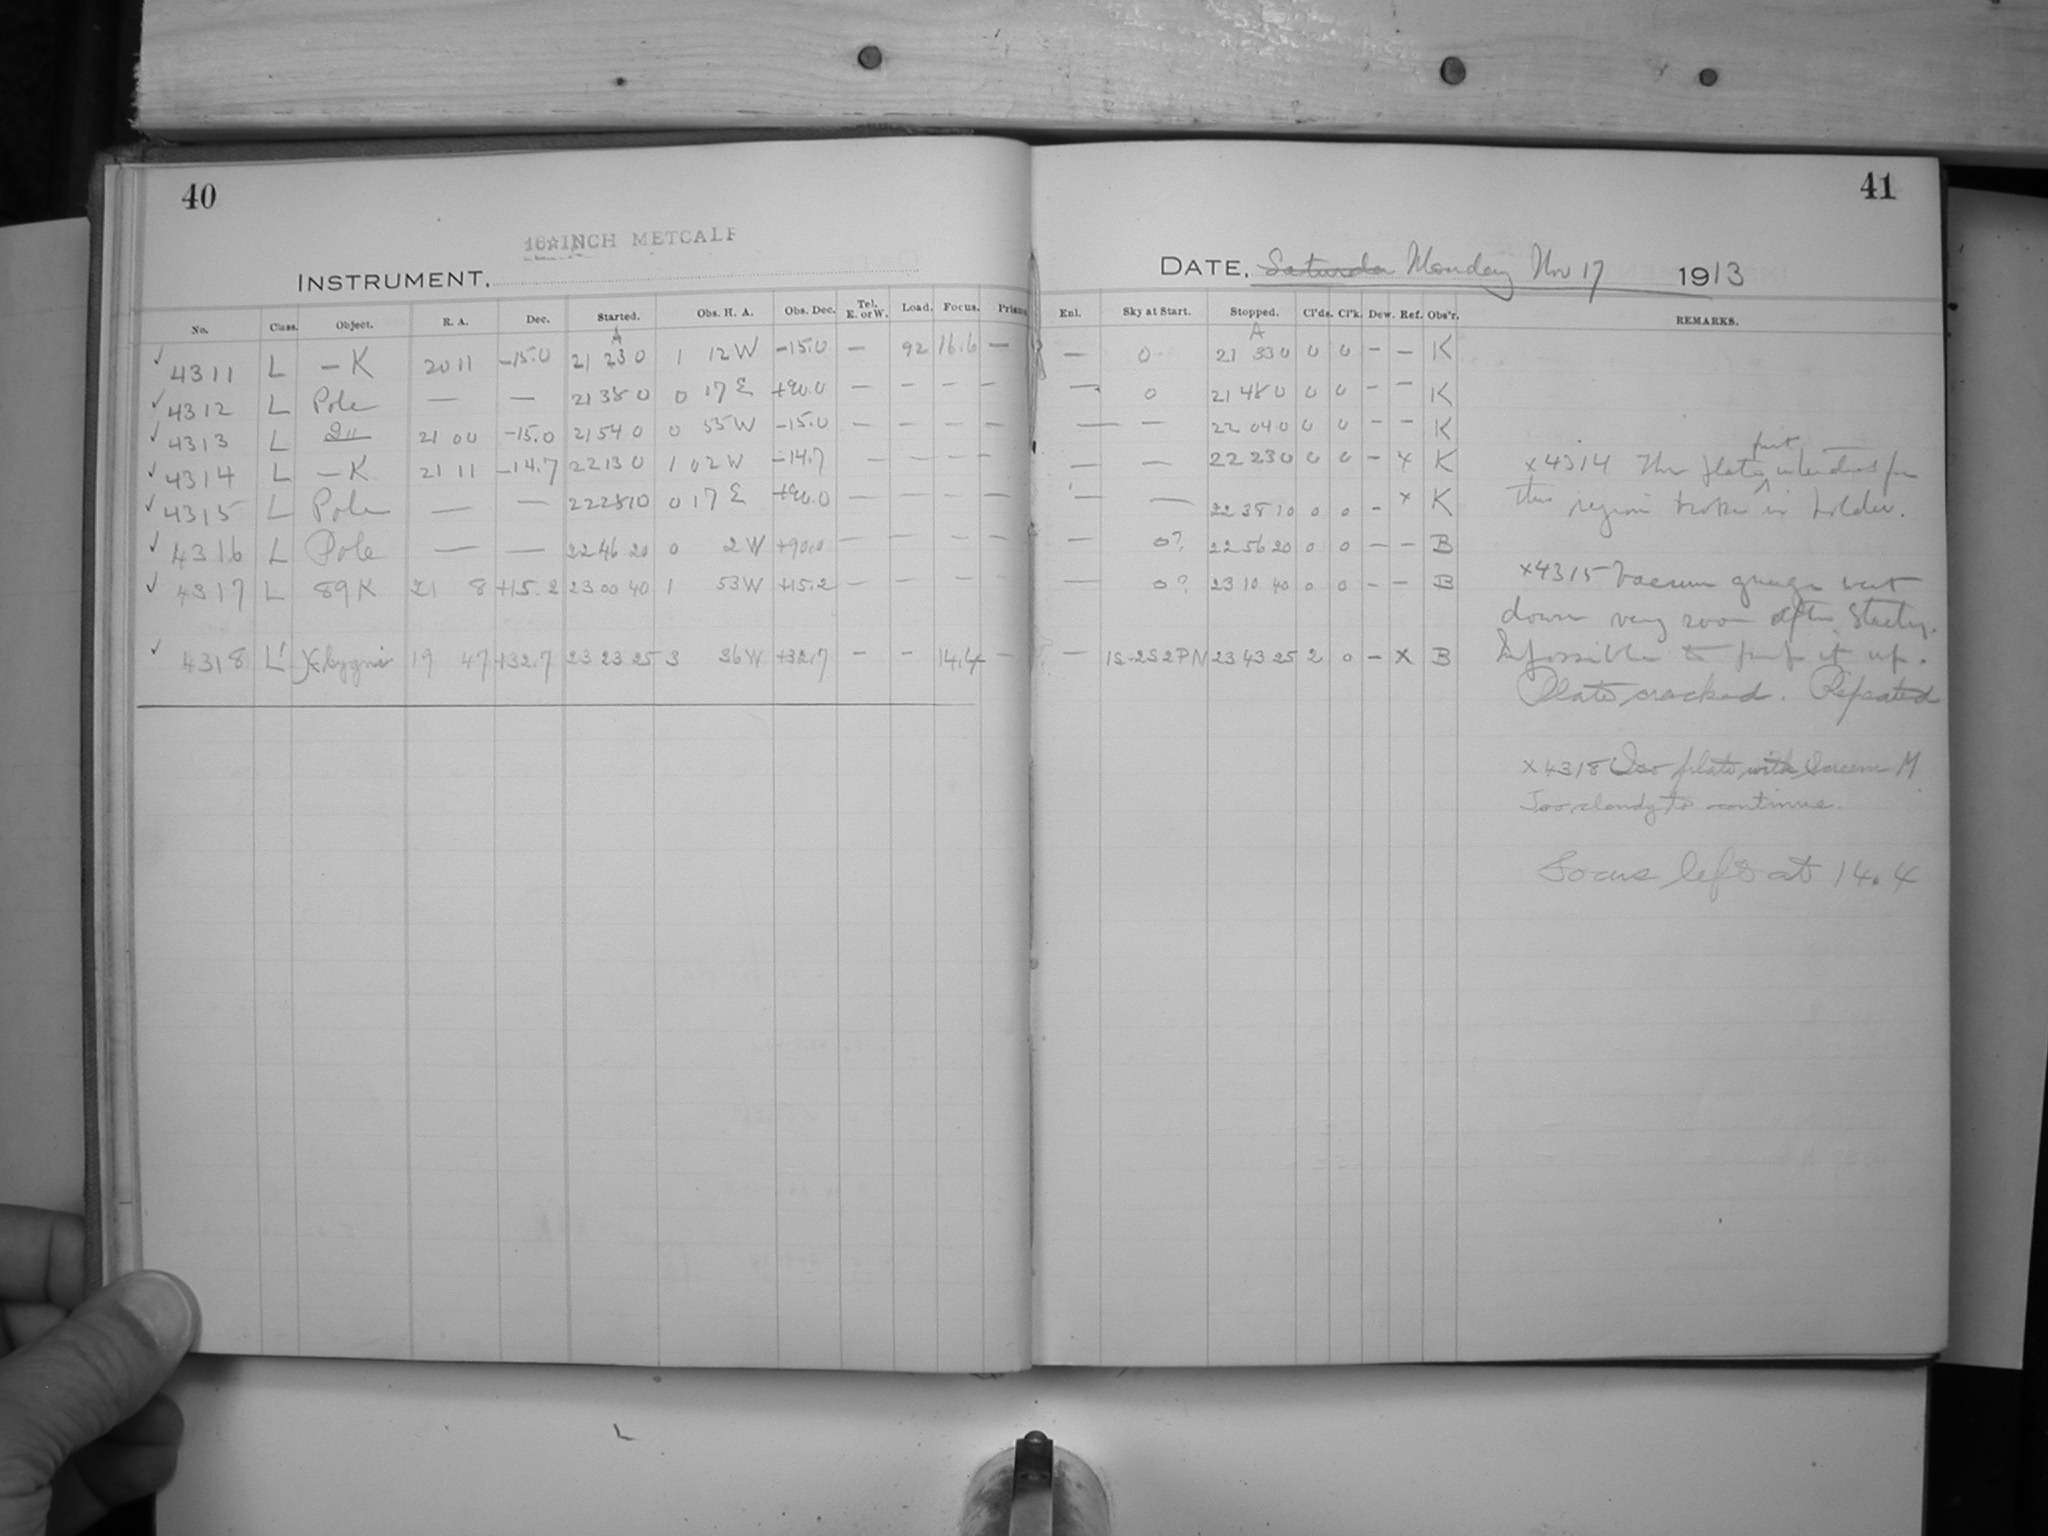 40
16 INCH METCALF
INSTRUMENT.
No. Class. Object. R. A. Dec. Started. Obs. H. A. Obs. Dec. Tel. E. or W. Load. Focus. Prism
A
✓ 4311 L — K 20 11 −15.0 21 23 0 1 12 W −15.0 — 92 16.6 —
✓ 4312 L Pole — — 21 38 0 0 17 E +90.0 — — — —
✓ 4313 L 21 00 −15.0 21 54 0 0 55 W −15.0 — — — —
✓ 4314 L — K 21 11 −14.7 22 13 0 1 02 W −14.7 — — — —
✓ 4315 L Pole — — 22 28 10 0 17 E +90.0 — — — —
✓ 4316 L Pole — — 22 46 20 0 2 W +90.0 — — — —
✓ 4317 L 89 K 21 8 +15.2 23 00 40 1 53 W +15.2 — — — —
✓ 4318 L' X Cygni 19 47 +32.7 23 23 25 3 36 W +32.7 — — 14.4 —
41
DATE, Saturda Monday Nov 17 1913
Enl. Sky at Start. Stopped. Cl'ds. Cl'k. Dew. Ref. Obs'r. REMARKS.
A
— 0 21 33 0 0 0 — — K
— 0 21 48 0 0 0 — — K
— — 22 04 0 0 0 — — K
— — 22 23 0 0 0 — x K
— — 22 38 10 0 0 — x K
— 0? 22 56 20 0 0 — — B
— 0? 23 10 40 0 0 — — B
— 1S-2S2PN 23 43 25 2 0 — X B
first
x 4314 The plate intended for
this region broke in holder.
x 4315 Vacuum gauge went
down very soon after starting.
Impossible to pump it up.
Plate cracked. Repeated
x 4318 Iso plate with Screen M
Too cloudy to continue.
Focus left at 14.4